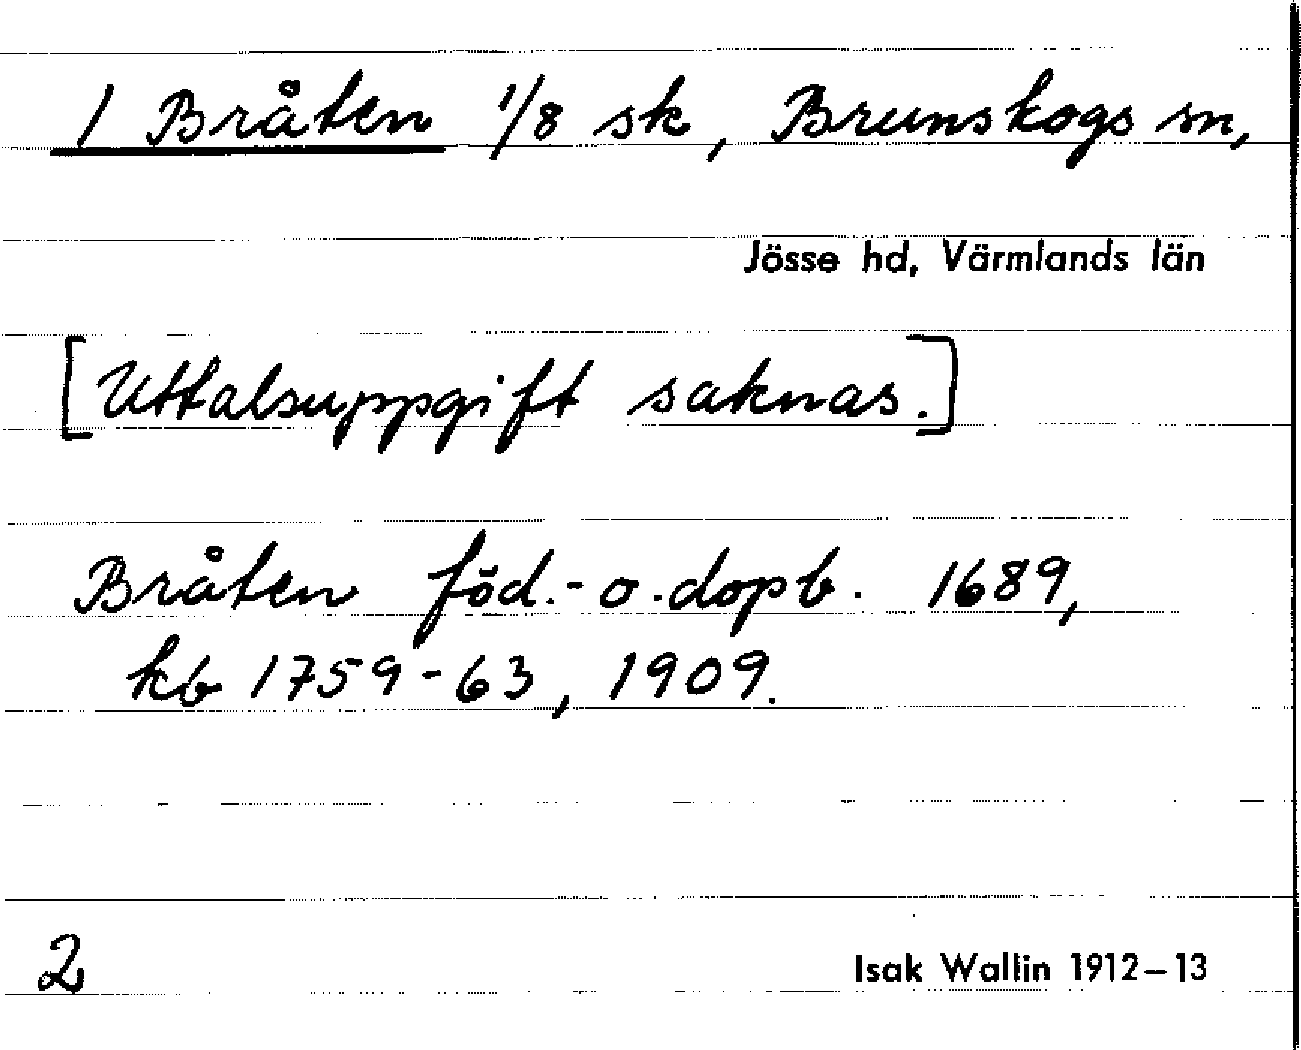 1 Bråten 1/8 sk, Brunskogs sn,
Jösse hd, Värmlands län
[Uttalsuppgift saknas.]
Bråten föd.- o. dopb. 1689,
kb 1759-63, 1909.
2
Isak Wallin 1912–13